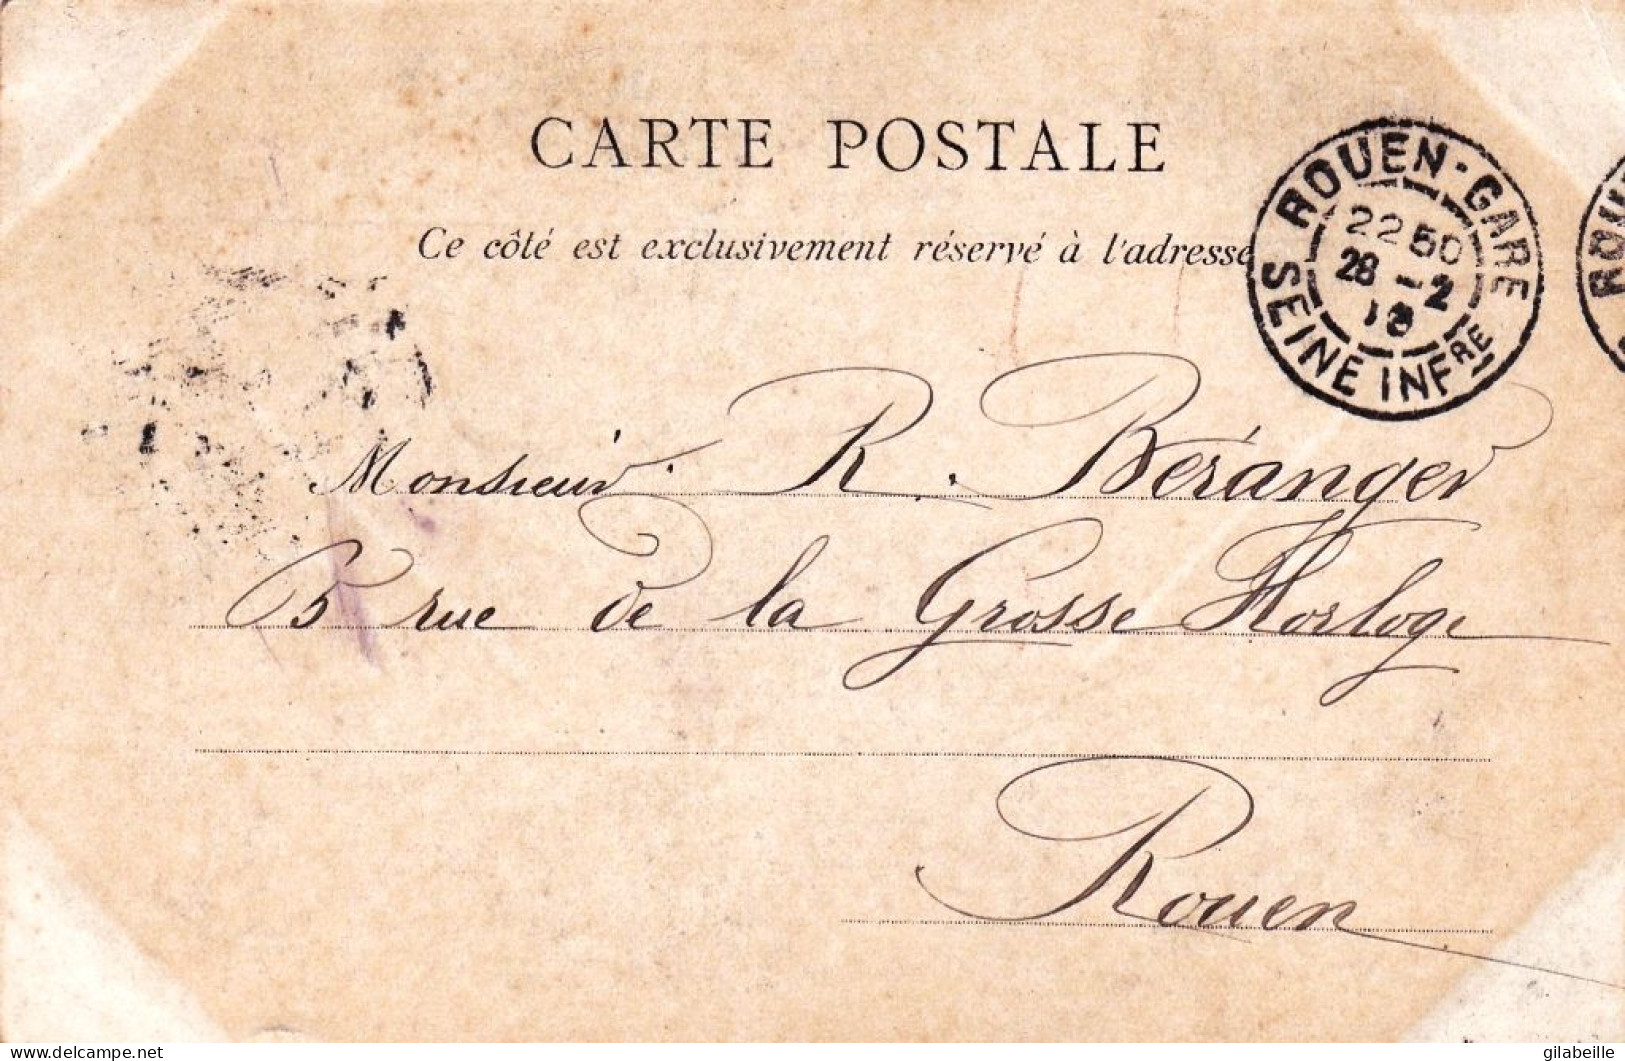 CARTE POSTALE
Ce côté est exclusivement réservé à l'adresse
ROUEN-GARE
22 50
28 - 2
SEINE INFRE
ROU
Monsieur R. Béranger
rue de la Grosse Horloge
Rouen
delcampe.net
gilabeille